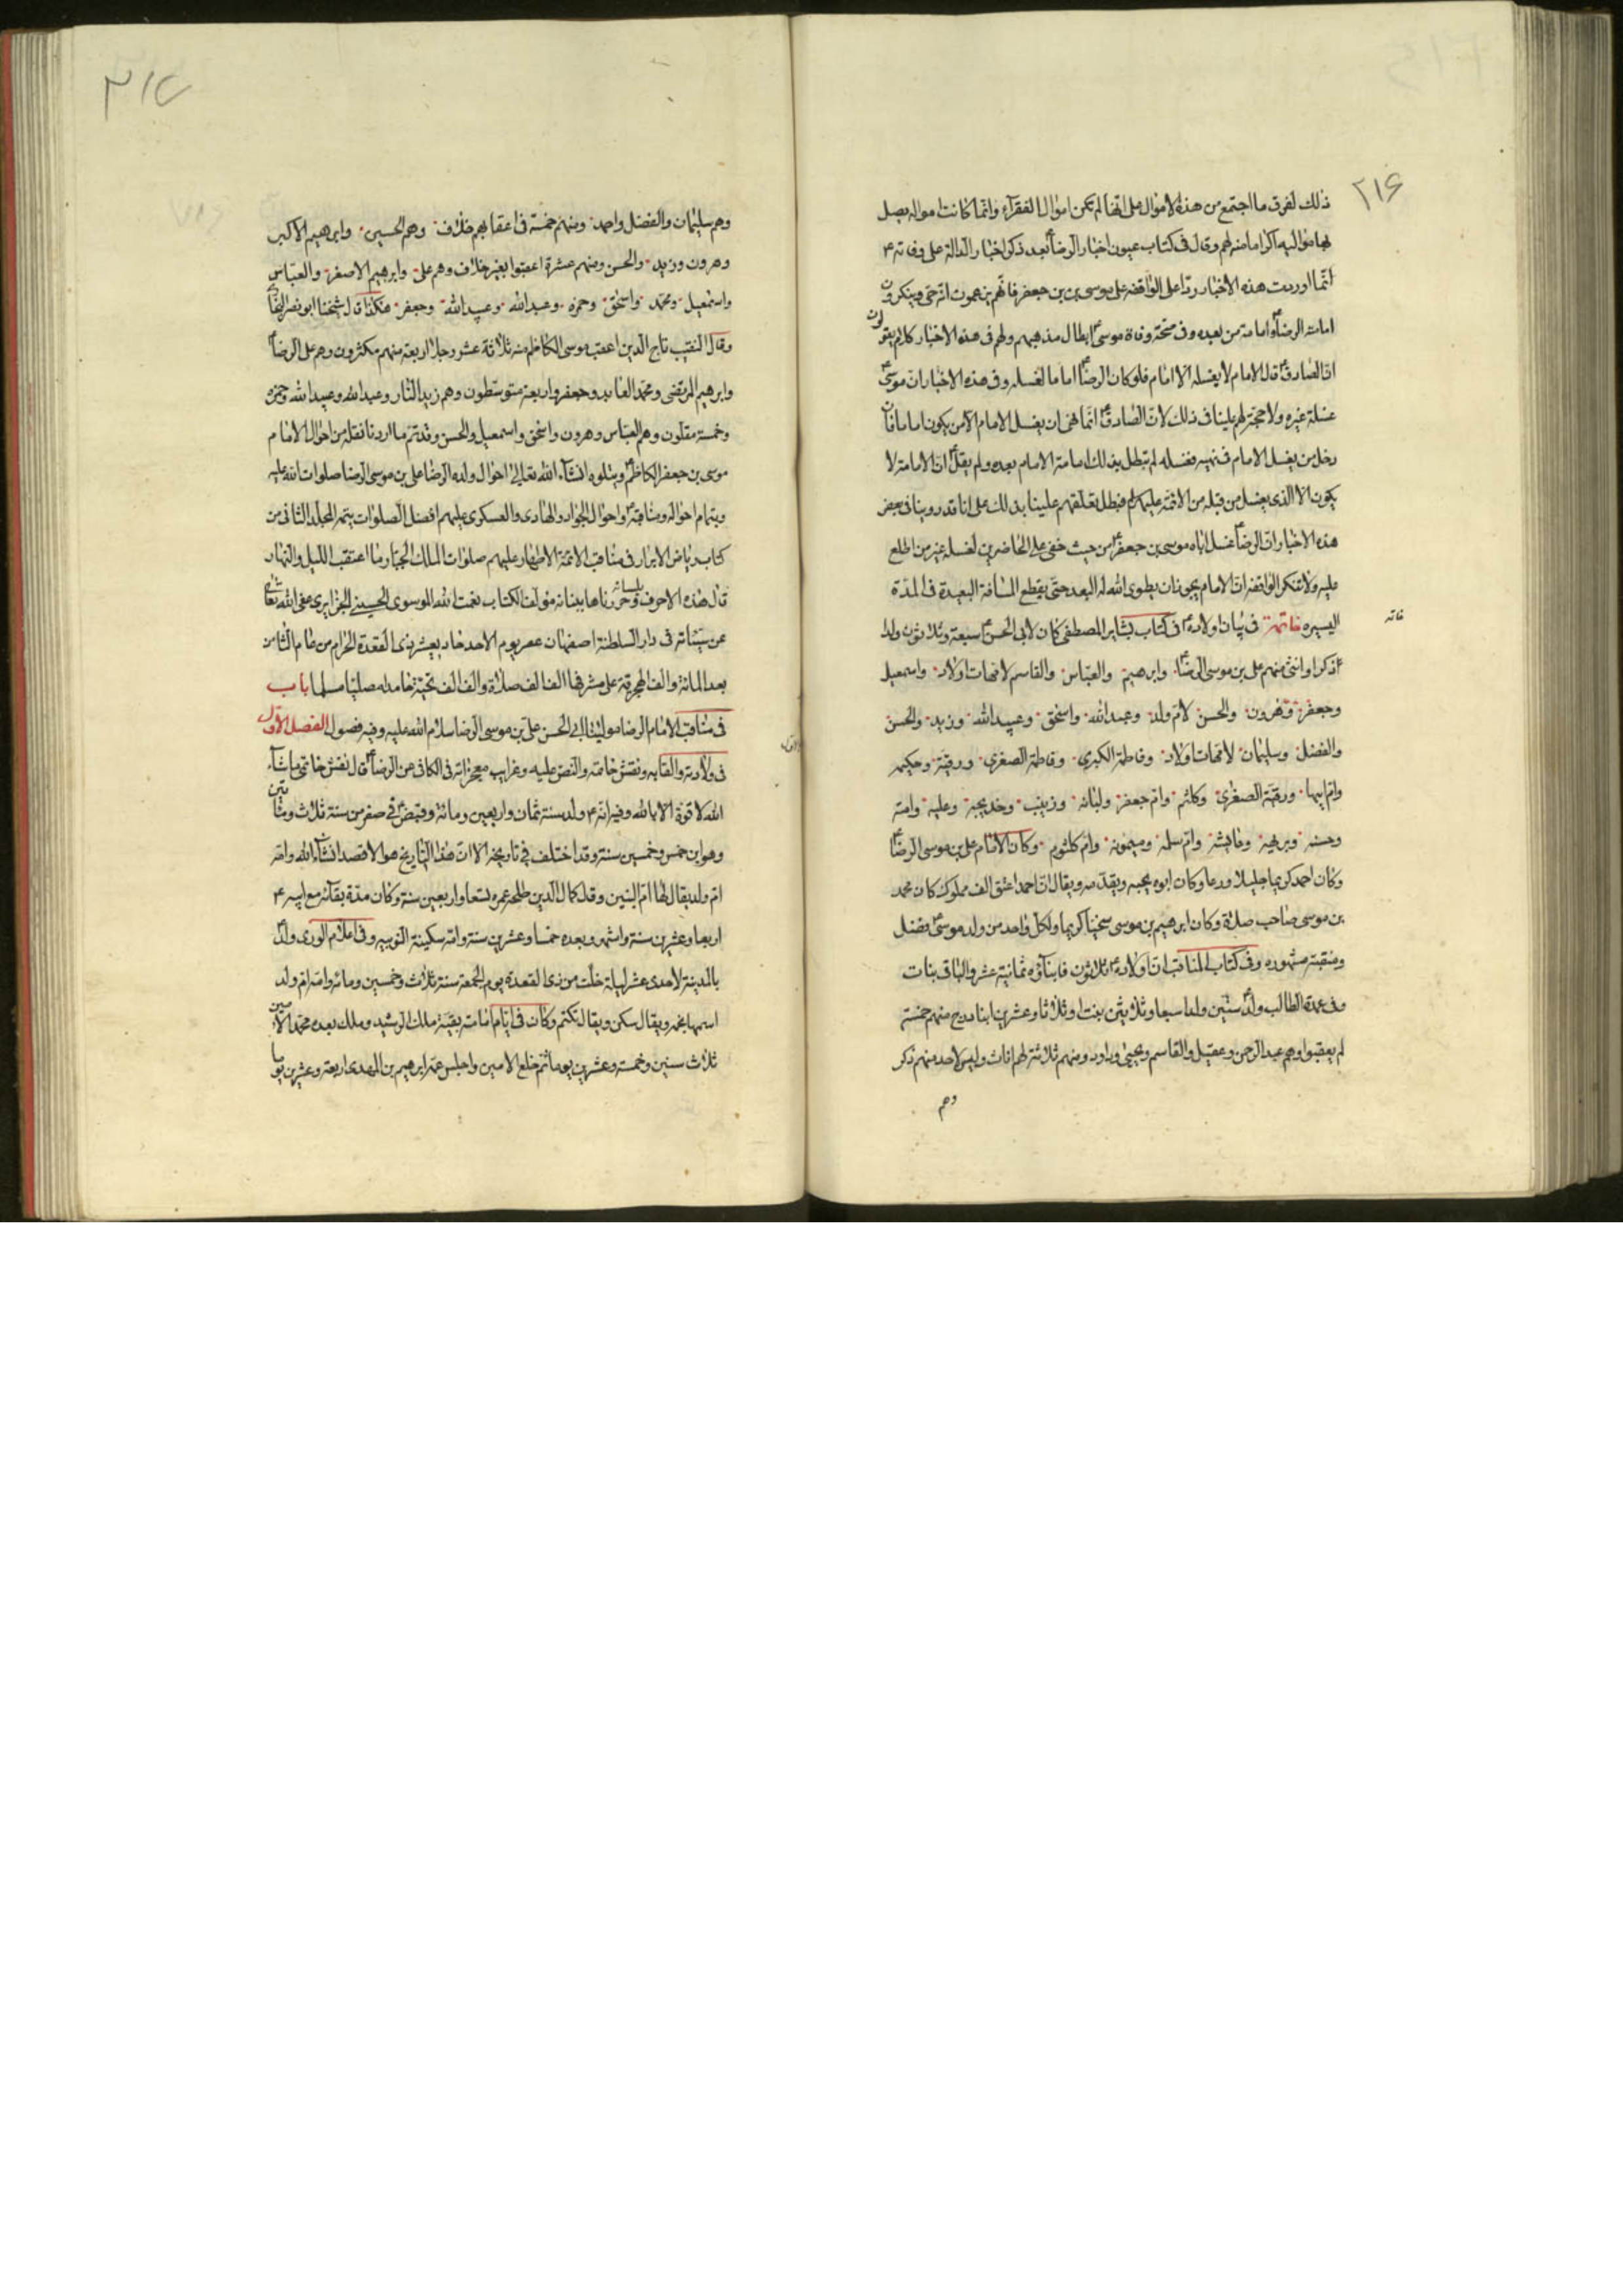 ٢١۶
ذلك لفرق ما اجتمع من هذه الاموال على انها لم تكن اموال الفقرآء وانما كانت اموالا يصل
بها مواليه اكراما منهم له وقال فى كتاب عيون اخبار الرضاؑ بعد ذكر اخبار الدالة على وفاته ع
انّما اوردت هذه الاخبار ردّا على الواقفة على موسى بن جعفر فانهم يزعمون انه حى وينكرون
امامة الرضاؑ وامامة من بعده وفى صحّة وفاة موسىؑ ابطال مذهبهم ولهم فى هذه الاخبار كلام يقولون
ان الصادقؑ قال الامام لا يغسله الا امام فلو كان الرضاؑ اماما لغسله وفى هذه الاخبار ان موسىؑ
غسله غيره ولا حجة لهم علينا فى ذلك لانّ الصادقؑ انّما نهى ان يغسل الامام الا من يكون اماما فان
دخل من يغسل الامام فى نهيه فغسله لم تبطل بذلك امامة الامام بعده ولم يقلؑ ان الامامة لا
يكون الا الذى يغسل من قبله من الائمّة عليهم السلام فبطل تعلّقهم علينا بذلك على انا قد روينا فى بعض
هذه الاخبار ان الرضاؑ غسل اباه موسى بن جعفرؑ من حيث خفى على الحاضرين لغسله غير من اطلع
عليه ولا تنكر الواقفة ان الامام يجوز ان يطوى الله له البعد حتّى يقطع المسافة البعيدة فى المدّة
اليسيره خاتمة فى بيان اولادهؑ فى كتاب بشاير المصطفى كان لابى الحسنؑ سبعة وثلاثون ولدا
خاتمه
ذكرا وانثى منهم على بن موسى الرضاؑ وابرهيم والعبّاس والقاسم لامهات اولاد واسمعيل
وجعفر وهرون والحسن لامّ ولد وعبدالله واسحٰق وعبيدالله وزيد والحسن
والفضل وسليمان لامّهات اولاد وفاطمة الكبرى وفاطمة الصغرى ورقيّة وحكيمه
وامّ ابيها ورقيّة الصغرى وكلثم وامّ جعفر ولبانه وزينب وخديجه وعليه وامنه
وحسنه وبريهة وعايشة وامّ سلمه وميمونه وامّ كلثوم وكان الامام على بن موسى الرضاؑ
وكان احمد كريما جليلا ورعا وكان ابوه يحبه ويقدّمه ويقال ان احمد اعتق الف مملوك كان محمد
بن موسى صاحب صلاة وكان ابرهيم بن موسى سخيّا كريما ولكل واحد من ولد موسىؑ فضل
ومنقبته مشهوره وفى كتاب المناقب ان اولادهؑ ثلاثون فابنآؤه ثمانية عشر والباقى بنات
وفى عمدة الطالب ولدؑ ستّين ولدا سبعا وثلاثين بنتا وثلاثا وعشرين ابنا درج منهم خمسة
لم يعقبوا وهم عبدالرحمن وعقيل والقاسم ويحيى وداود ومنهم ثلاثة لهم اناث وليس لاحد منهم ذكر
وهم
٢١٧
وهم سليمان والفضل واحمد ومنهم خمسة فى اعقابهم خلاف وهم الحسين وابرهيم الاكبر
وهرون وزيد والحسن ومنهم عشرة اعقبوا بغير خلاف وهم على وابرهيم الاصغر والعبّاس
واسمعيل ومحمّد واسحٰق وحمزه وعبدالله وعبيدالله وجعفر هكذا قال شيخنا ابو نصر البخارى
وقال النقيب تاج الدين اعقب موسى الكاظم منه ثلاثة عشر رجلا اربعة منهم مكثرون وهم على الرضاؑ
وابرهيم المرتضى ومحمّد العابد وجعفر واربعة متوسطون وهم زيد النّار وعبدالله وعبيدالله وحمزه
وخمسة مقلّون وهم العبّاس وهرون واسحٰق واسمعيل والحسن وقد تم ما اردنا نقله من احوال الامام
موسى بن جعفر الكاظمؑ ويتلوه انشآء الله تعالى احوال ولده الرضا على بن موسى الرضا صلوات الله عليه
وبتمام احواله ومناقبهؑ واحوال الجواد والهادى والعسكرى عليهم افضل الصلوات يتم المجلّد الثانى من
كتاب رياض الابرار فى مناقب الائمّة الاطهار عليهم صلوات الملك الجبّار ما اعتقب الليل والنهار
قال هذه الاحرف بلسانه وحرّرناها ببنانه مؤلف الكتاب نعمت الله الموسوى الحسينى الجزايرى عفى الله تعالى
عن سيّئاته فى دار السلطنة اصفهان عصر يوم الاحد حاديعشر ذى القعدة الحرام من عام الثامن
بعد المائة والف الهجرية على مشرفها الف الف صلاة والف الف تحيّة حامدا مصليا مسلما باب
فى مناقب الامام الرضا مولينا ابى الحسن على بن موسى الرضا سلام الله عليه وفيه فصول الفصل الاول
فى ولادته والقابه ونقش خاتمه والنص عليه وغرايب معجزاته فى الكافى عن الرضاؑ قال نقش خاتمى ما شآء
الله لا قوة الا بالله وفيه انّه ع ولد سنة ثمان واربعين ومائة وقبضؑ فى صفر من سنة ثلاث ومأتين
وهو ابن خمس وخمسين سنة وقد اختلف فى تاريخه الا انّ هذا التاريخ هو الاقصد انشآء الله وامّه
امّ ولد يقال لها امّ البنين وقال كمال الدين طلحه عمره تسعا واربعين سنة وكان مدّة بقآئه مع ابيه ع
اربعا وعشرين سنة واشهر وبعده خمسا وعشرين سنة وامّه سكينة النوبيه وفى اعلام الورى ولدؑ
بالمدينة لاحدى عشر ليلة خلت من ذى القعدة يوم الجمعة سنة ثلاث وخمسين ومائه وامّه امّ ولد
اسمها نجمه ويقال سكن ويقال تكتم وكان فى ايّام امامته بقيّة ملك الرشيد وملك بعده محمّد الامين
ثلاث سنين وخمسة وعشرين يوما ثم خلع الامين واجلس عمّه ابرهيم بن المهدى اربعة وعشرين يوما